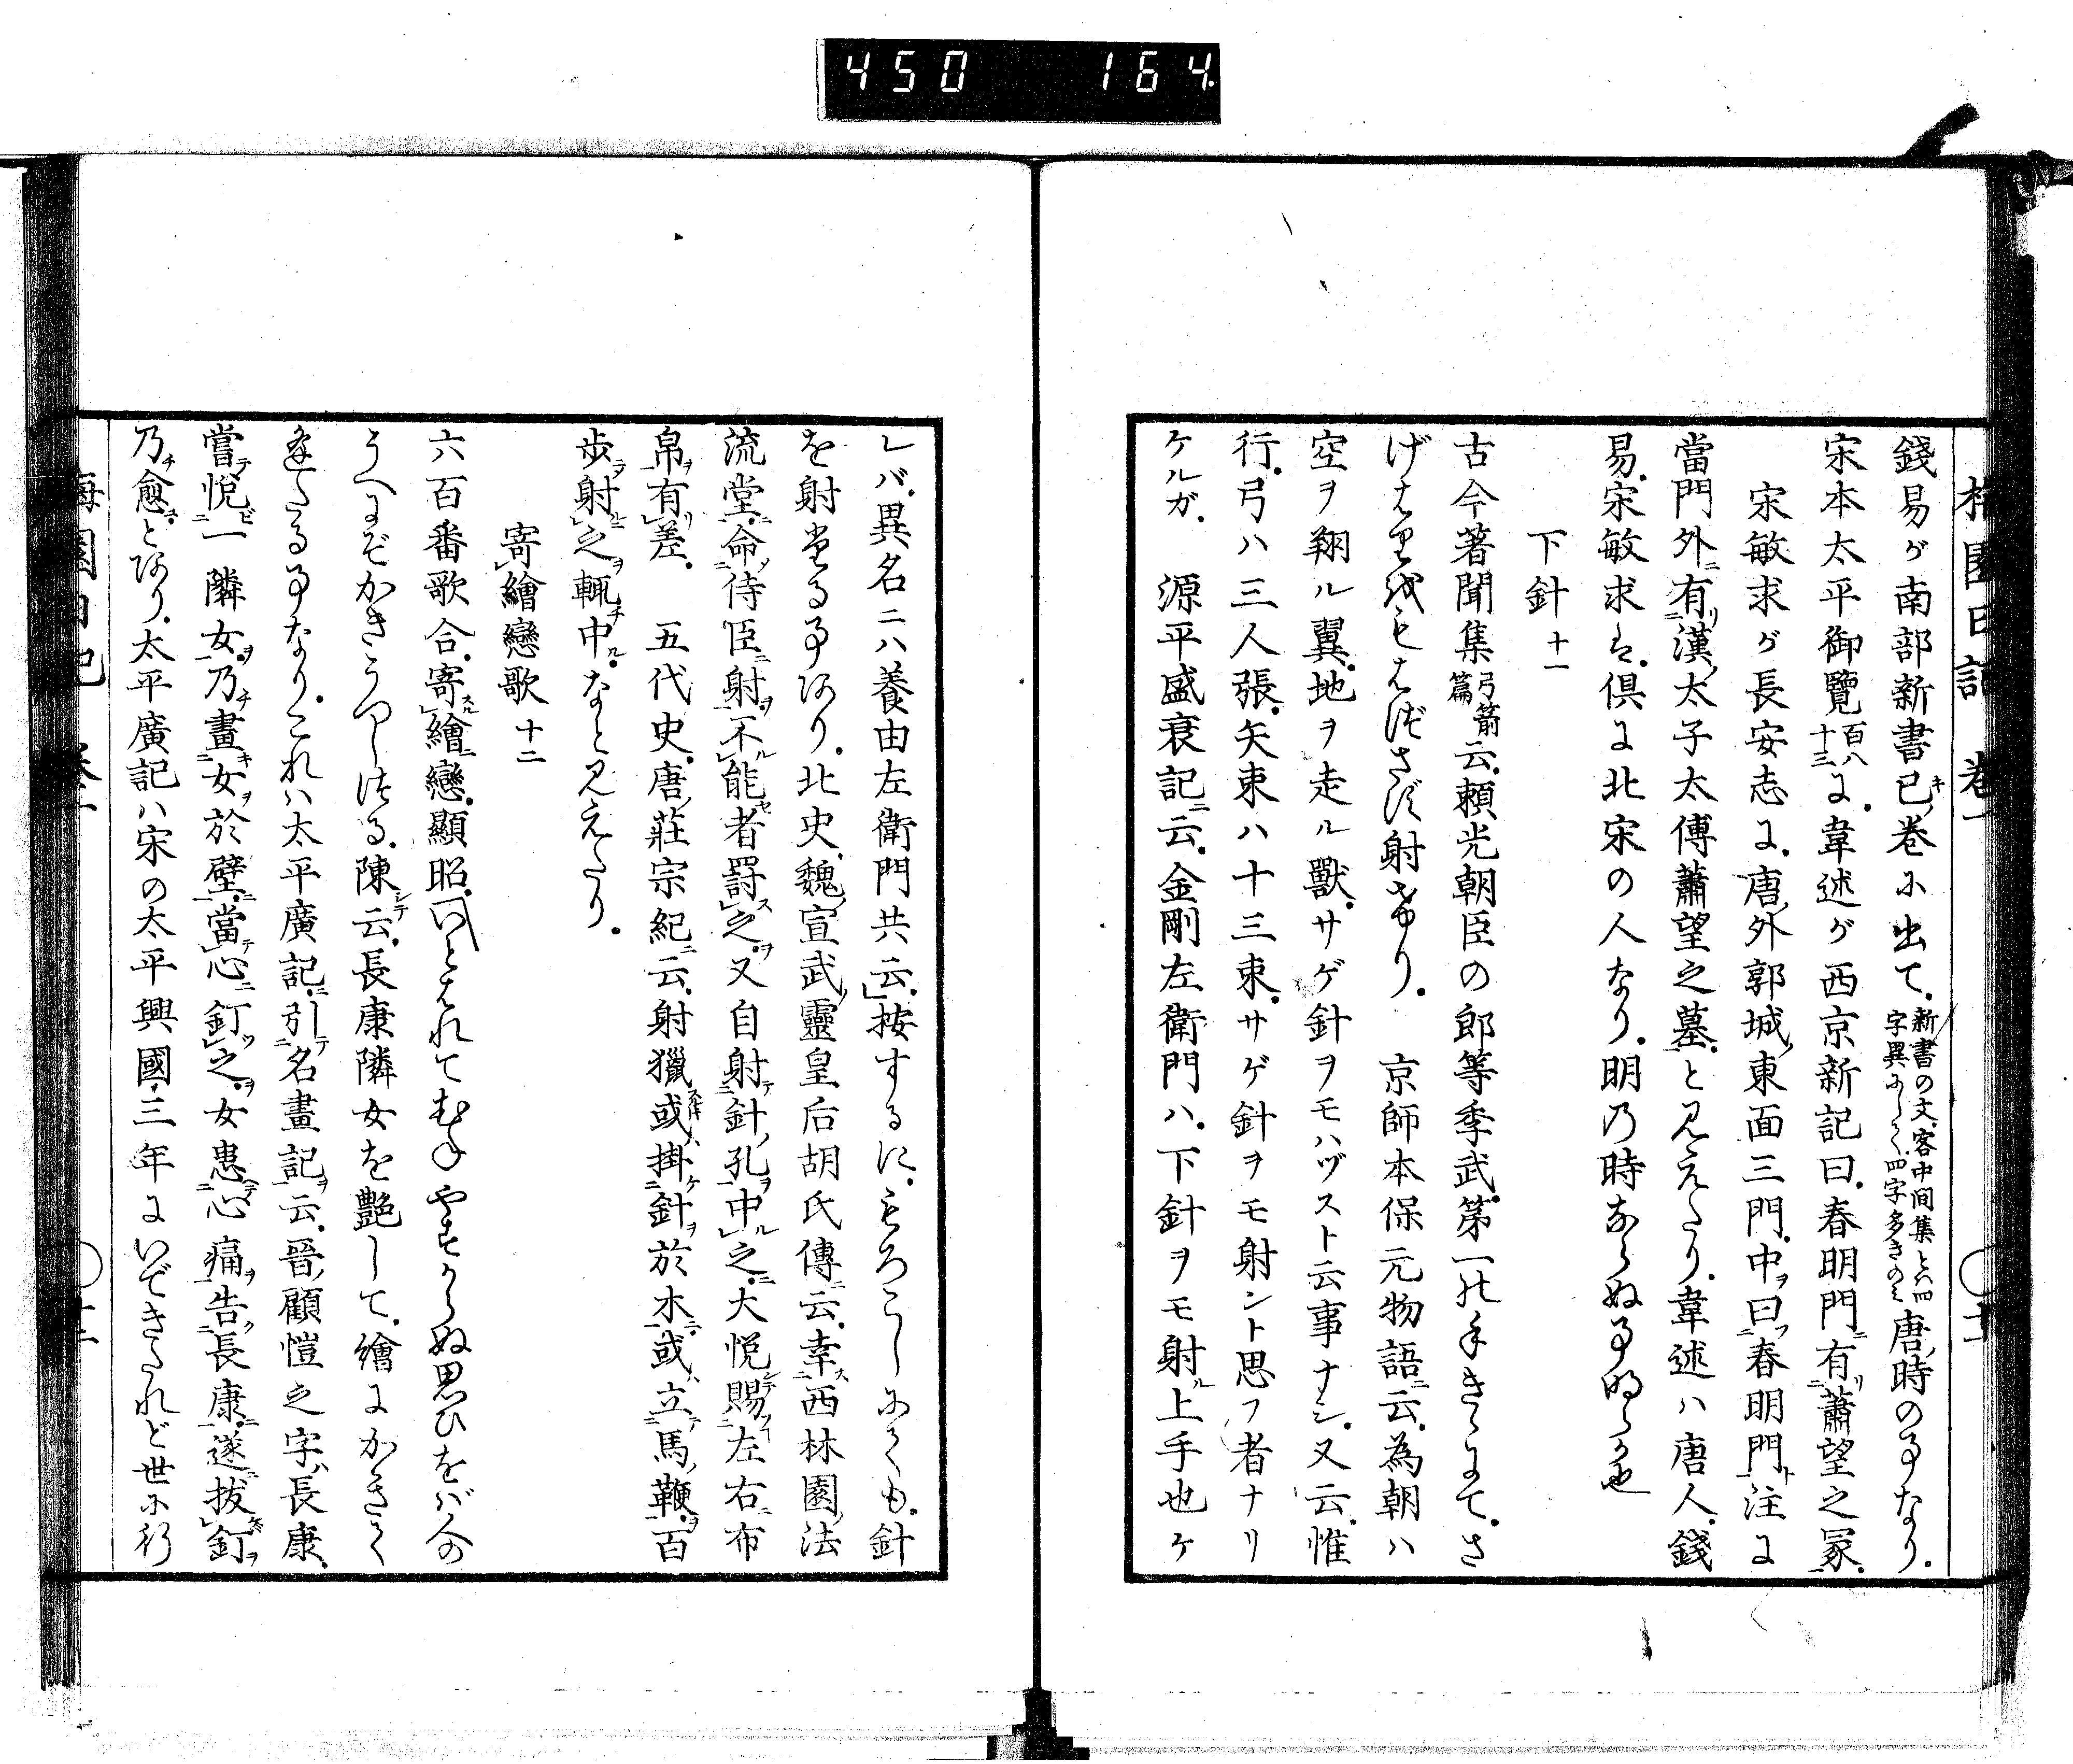 450 164
梅園日記 卷一
錢易ガ南部新書已キノ卷に出て。新書の文。客中间集と八四字異なく。四字多きのミ唐ノ時の事なり。
宋本太平御覽百八十三に。韋述ガ西京新記曰。春明門ニ有リ蕭望之冢。
宋敏求ガ長安志に。唐ノ外郭城。東面三門。中ヲ曰フ春明門ト注に
當門外ニ有リ漢ノ太子太傅蕭望之墓。と見えたり。韋述ハ唐人。錢
易。宋敏求ハ。倶に北宋の人なり。明の時ならぬ事明らか也
下針 十一
古今著聞集弓箭篇云。頼光朝臣の郎等季武。第一の手きゝにて。さ
げはりをもはづさず射けり。 京師本保元物語ニ云。為朝ハ
空ヲ翔ル翼。地ヲ走ル獸。サゲ針ヲモハヅスト云事ナシ。又云。惟
行。弓ハ三人張。矢束ハ十三束。サゲ針ヲモ射ント思フ者ナリ
ケルガ。 源平盛衰記ニ云。金剛左衛門ハ。下針ヲモ射ル上手也ケ
レバ。異名ニハ養由左衛門共云。按するに。もろこしにても。針
を射たる事あり。北史。魏ノ宣武靈皇后胡氏傳ニ云。幸ス西林園ノ法
流堂ニ。命ノ侍臣ニ射ヲ。不ル能セ者罰ス之ヲ。又自射テ針ノ孔ヲ。中ル之ニ。大悦シテ賜フ左右ニ布
帛ヲ有リ差。 五代史。唐ノ莊宗紀ニ云。射獵或ハ掛ケ針ヲ於木ニ。或ハ立テ馬ノ鞭ヲ。百
歩ニシテ射ル之ヲ輒チ中ル。なと見えたり。
寄繪戀歌 十二
六百番歌合。寄スル繪ニ戀。顯昭。いとはれてむねやすからぬ思ひをバ人の
うへにぞかきうつしつる。陳シテ云。長康隣女を艷して。繪にかきて
逢たる事なり。これハ太平廣記ニ。引テ名畫記ヲ云。晉ノ顧愷之字ハ長康。
嘗テ悦ビ一隣女ヲ。乃チ畫キ女ヲ於壁ニ。當テ心ニ釘ウツ之ヲ。女患テ心痛ヲ告ク長康ニ。遂ニ拔釘ヲ
乃チ愈ユ。とあり。太平廣記ハ宋の太平興國三年にいできたれど世に行
梅園日記 卷一